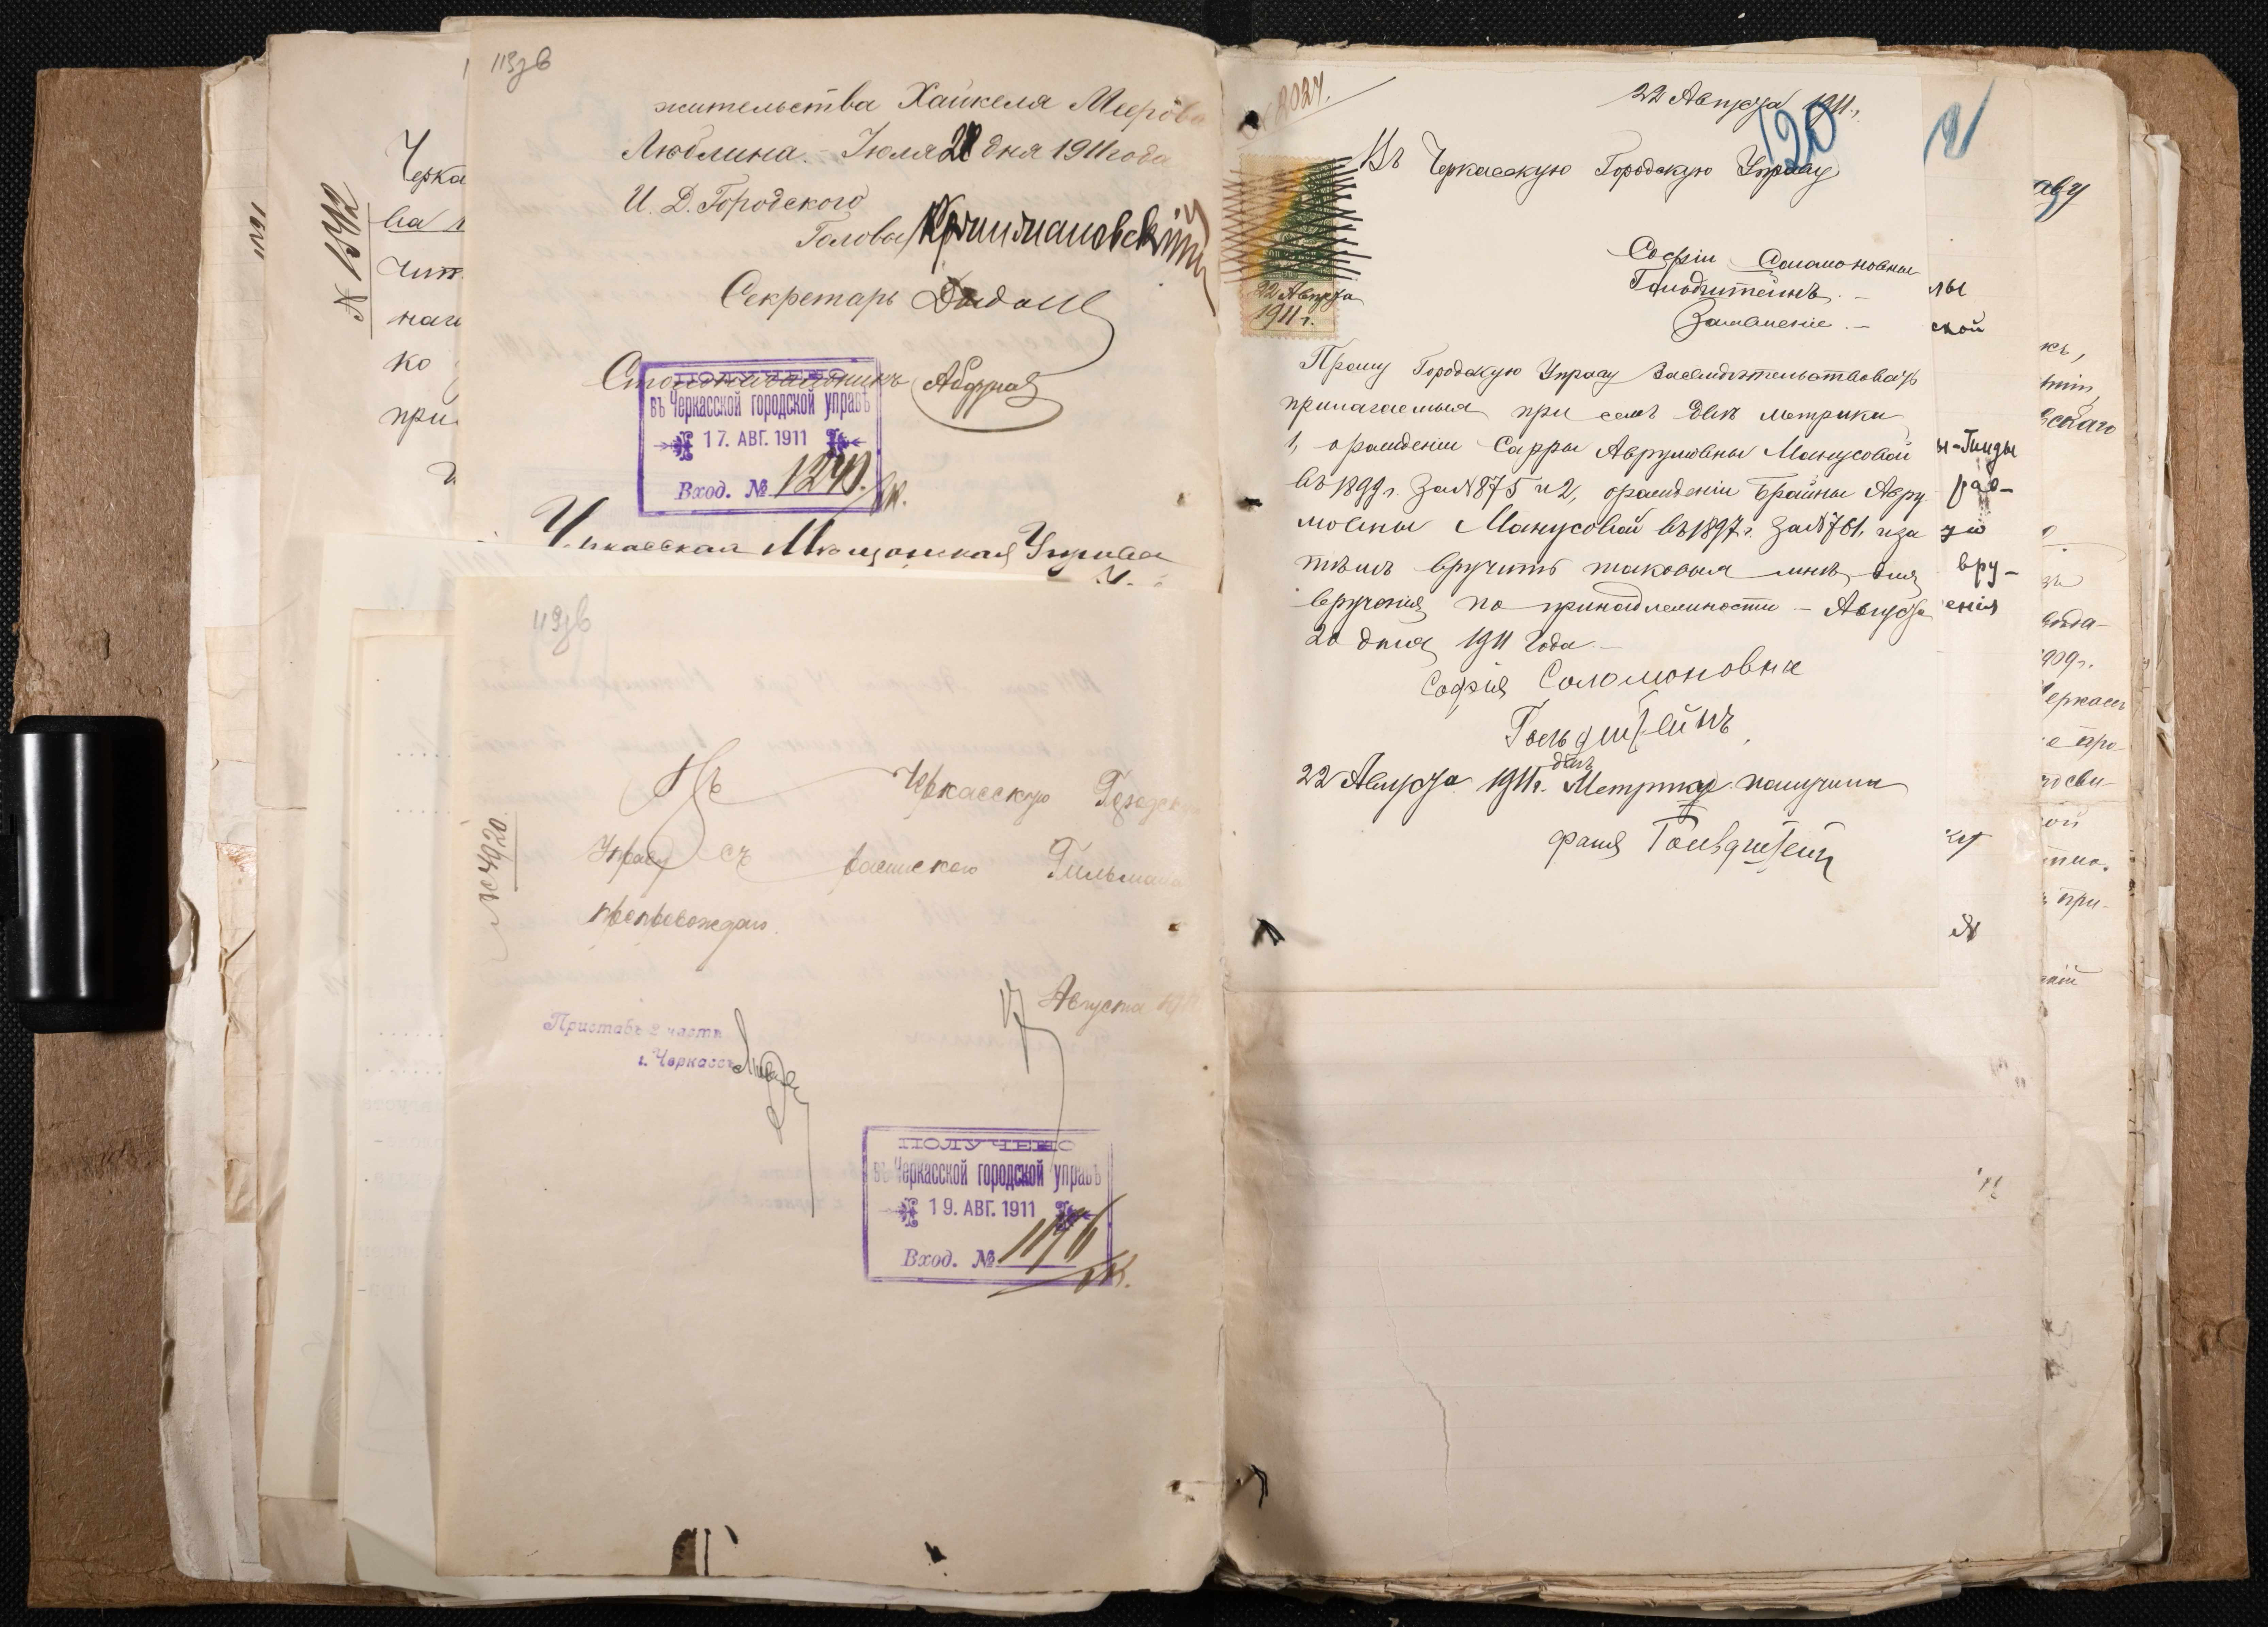 113зв
жительства Хайкеля Меерова
Люблина. - Іюля 28 дня 1911 года
И. Д. Городского
Головы
Секретарь
Столоначальникъ
ПОЛУЧЕНО
въ Черкасской городской управѣ
17. АВГ. 1911
Вход. № 1240.
Черкасская Мѣщанская Управа
Черка
№ 1542
ва
чит
наш
ко
при
119зв
Въ Черкасскую Городскую
Управу съ распискою Гильмана
препровождаю.
№ 4920
17 Августа 1911
Приставъ 2 части
г. Черкассъ
ПОЛУЧЕНО
въ Черкасской городской управѣ
19. АВГ. 1911
Вход. № 1176
№ 2024.
22 Августа 1911 г.
120
Въ Черкасскую Городскую Управу
22 Августа
1911 г.
Софіи Соломоновны
Гольдштейнъ. -
Заявленіе. -
Прошу Городскую Управу Засвидѣтельствовать
прилагаемыя при семъ двѣ метрики
1, о рожденіи Сарры Аврумовны Манусовой
въ 1899 г. за № 875 и 2, о рожденіи Брайны Авру-
мовны Манусовой въ 1897 г. за № 761, и за
тѣмъ вручить таковыя мнѣ для
врученія по принадлежности - Августа
20 дня 1911 года. -
Софія Соломоновна
Гольдштейнъ
22 Августа 1911 г. двѣ Метрики получила
Фаня Гольдштейн
лы
ской
ы-Гинды
вру-
енія
аву
къ,
скаго
1909 г.
Черкасс
е про-
ой
при-